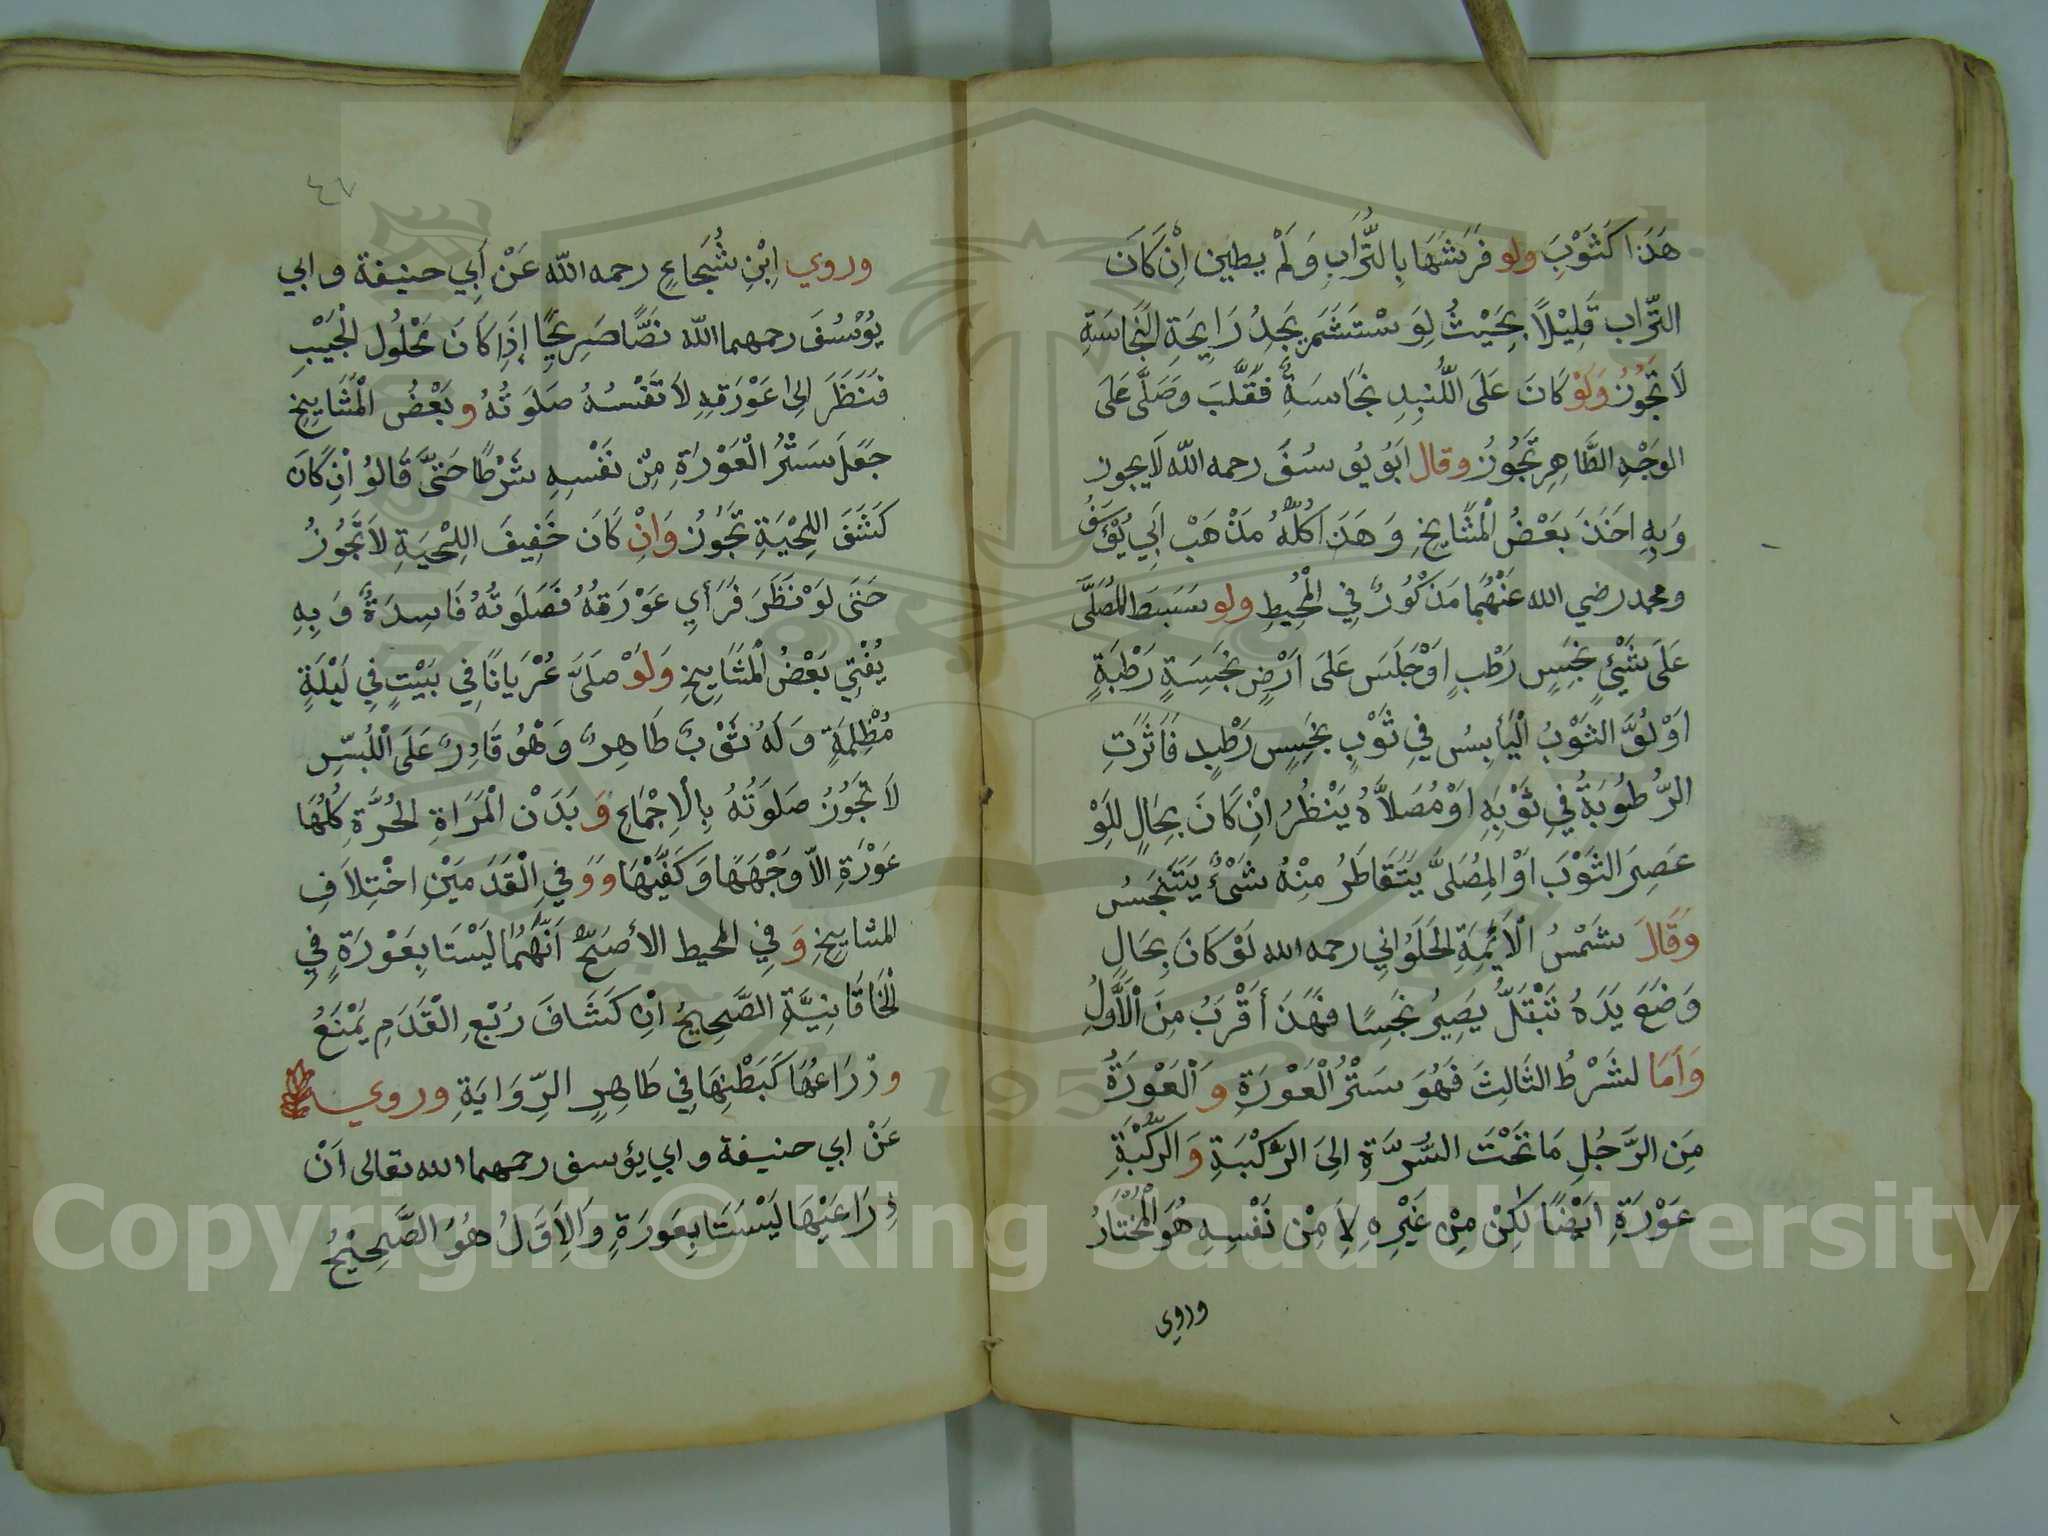 هَذَا كَثَوْبَ ولو فَرَشَهَا بِالتُّرَابِ وَلَمْ يطين اِنْ كَانَ
التّراب قَلِيْلاً بِحَيْثُ لَوِ سْتَشَمَ يَجِدُ رَايِحَةِ النَّجَاسَةِ
لَا تَجُوْزُ وَلَوْ كَانَ عَلَى اللُّبِدِ نَجَاسَةٌ فَقَلَّبَ وَصَلَّى عَلَى
الوَجْهِ الطَّاهِرِ تَجُوْزُ وقال ابَوُ يُوسُفَ رحمه الله لَا يجوز
وَبِهِ اخَذَ بَعْضُ الْمَشَايِخِ وَهَذَ اكُلُّهُ مَذْهَبْ اَبِي يُؤسَفُ
ومحمد رضي الله عَنْهُمَا مَذْكُورٌ فِي الْمُحِيْطِ ولو سَبَسَطَ الْمُصَلَّى
عَلَى شَيْئٍ نَجِسٍ رَطْبٍ اوْجَلَسَ عَلَى اَرْضٍ نَجِسَةٍ رَطْبَةٍ
اوْلُفَّ الثَوْبُ الْيَأبِسُ فِي ثَوْبٍ نَجِسٍ رَطْبٍ فَاَثَرَتِ
الرُّطُوْبَةُ فِي ثَوْبِهِ اوْمُصَلاَّهُ يَنْظُرُ اِنْ كَانَ بِحَالٍ لَلَوْ
عَصِرَ الثَوْبَ اوْ الْمُصَلَّى يَتَقَاطَرُ مِنْهُ شَئٌ يَتَنَجَسُ
وَقَالَ شَمْسُ الْاَئِمَةِ الحَلَوَانِي رحمه الله لَوْ كَانَ بِحَالٍ
وَضَعَ يَدَهُ تَبْتَلُّ يَصِيرُ نَجِسًا فَهَذَ أَقْرَبُ مِنَ الْاَوَّلُ
وَاَمَا لشَرْطُ الثَالِثَ فَهُوَ سَتْرُ الْعَوْرَةِ وَ الْعَوْرَةُ
مِنَ الرَّجُلِ مَا تَحْتَ السُّرَّةِ الِىَ الرَّكْبَةِ وَ الرُّكْبَةِ
عَوْرَةِ ايَضًا لكِنْ مِنْ غَيْرِهِ لاَ مِنْ نَفْسِهِ هُوَ الْمُخْتَارُ
وروى
٤٧
وروي اِبْنِ شُجَاعٍ رحمه الله عَنْ اَبِي حنيفة وابي
يُوْسُفَ رحمهما الله نَصًّا صَرِيحًا إِذَا كَانَ مَحْلُول الْجَيْبِ
فَنَظَرَ الِىَ عَوْرَتِهِ لاَ تَفْسُهُ صَلَوتُهُ وبَعْضُ الْمَشَايِخِ
جَعَلَ سَتْرُ الْعَوْرَةِ مِنْ نَفْسِهِ شَرْطًا حَتَّى قَالُوْ اْنِ كَانَ
كَشَفَ اللِحْيَةِ تَجُوْزُ وَاِنْ كَانَ خَفِيفَ اللِحْيَةِ لاَ تَجُوْزُ
حَتَى لَوْ نَظَرَ فَرَأي عَوْرَتِهُ فَصَلَوتُهُ فَاسِدَةٌ وَبِهِ
يُفْتِي بَعْضُ الْمَشَايِخِ وَلَوْ صَلَىَّ عُرْيَانًا فِي بَيْتٍ فِي لَيْلَةٍ
مُظْلِمَةٍ وَلَهُ ثَوْبٌ طَاهِرٌ وَهْوُ قَادِرٌ عَلَى اللُبسِ
لاَ تَجُوْزُ صَلَوَتُهُ بِالْاِجْمَاعِ وَ بَدَنْ الْمَرَاةِ الحُرَّةِ كُلُهَا
عَوْرَةِ الاّ وَجْهَهَا وَكَفَّيْهَا وَوَفِي الْقَدَ مَيْنِ اخْتِلاَفِ
المشايخِ وَ فِي المحيط الأصَحّ اَنَّهُمَا لَيْسْتَا بِعَوْرَةٍ فِي
الْخَاقَانِيَّةِ الصَّحِيحُ اْنِ كَشَافَ رُبْعِ الْقَدَمِ يَمْنَعُ
وذْرَاعُهَا كَبَطْنِهَا فِي طَاهِرِ الرِّوَايَةِ وروي
عَنْ ابي حنيفة وابي يؤسف رحمهما الله تعالى اَنْ
ذِرَاعَيْهَا لَيْسَتَا بِعَوَرَةِ وَالِاَوَّلُ هُوَ الصَّحِيْحُ
Copyright © King Saud University
195